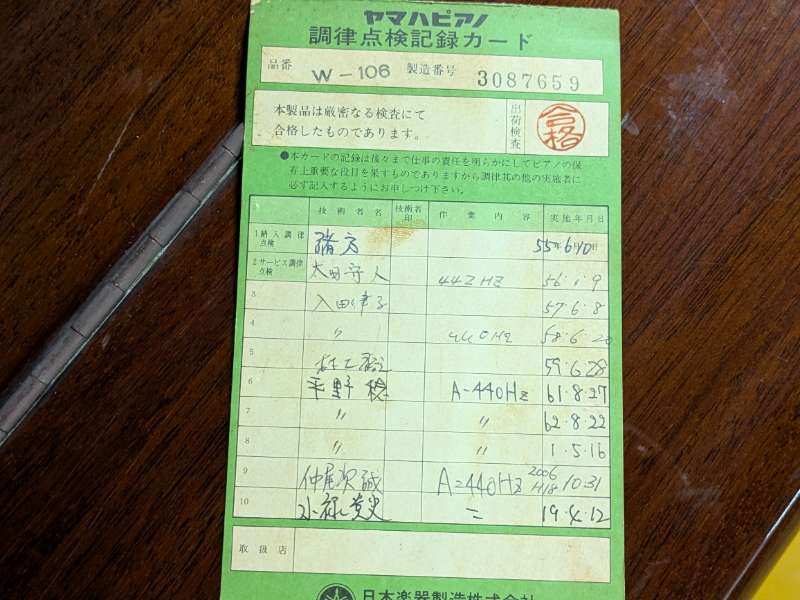 ヤマハピアノ
調律点検記録カード
品番 W-106 製造番号 3087659
本製品は厳密なる検査にて
合格したものであります。
出荷検査
合格
●本カードの記録は後々まで仕事の責任を明らかにしてピアノの保
存上重要な役目を果すものでありますから調律其の他の実施者に
必ず記入するようにお申しつけ下さい。
技術者名 技術者印 作業内容 実施年月日
1 納入調律点検 緒方 55年6月10日
2 サービス調律点検 太田守人 442HZ 56・1・9
3 入田 57・6・8
4 〃 440HZ 58・6・20
5 59・6・28
6 平野 稔 A-440Hz 61・8・27
7 〃 〃 62・8・22
8 〃 〃 1・5・16
9 仲尾次誠 A=440HZ 2006 H18 10・31
10 小禄 〃 19・4・12
取扱店
日本楽器製造株式会社